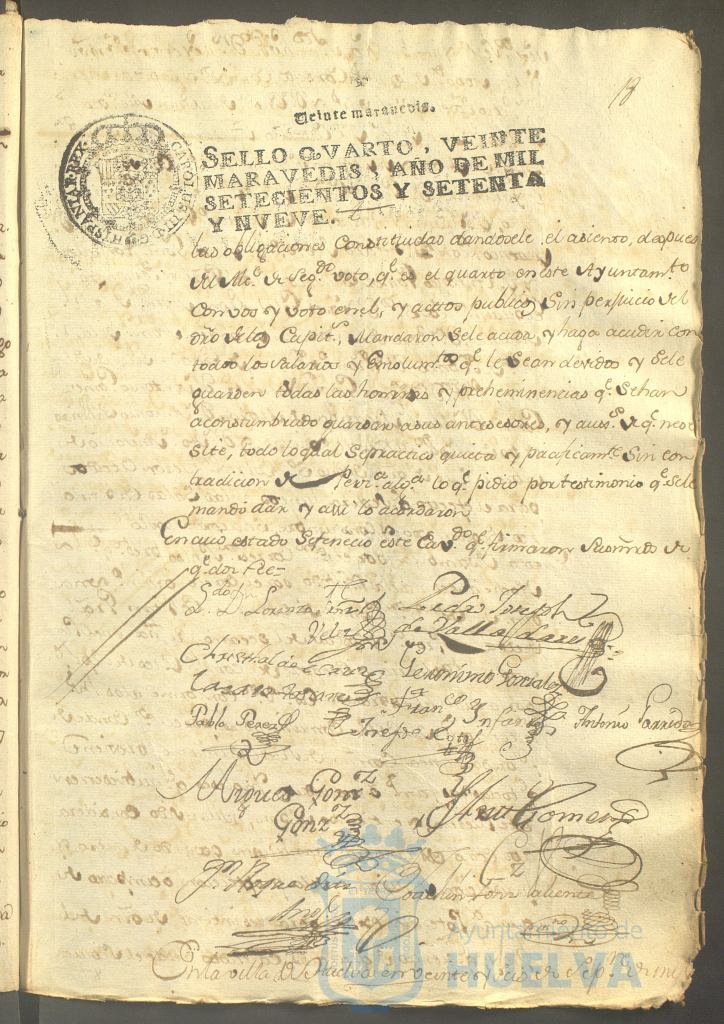 18
Veinte maravedis.
SELLO QVARTO, VEINTE
MARAVEDIS, AÑO DE MIL
SETECIENTOS Y SETENTA
Y NVEVE.
las obligaciones Constituidas dandosele el asiento, despues
del de Seg.do voto, q.e es el quarto en este Ayuntam.to
con vos y voto en el, y actos publicos Sin perjuicio del
dro de los Capit.s, Mandaron Sele acuda, y haga acudir con
todos los Salarios y Emolum.tos q.e le Sean devidos y Sele
guarden todas las honrras y preheminencias q.e Sehan
acostumbrado guardar asus antecesores, y
site, todo lo qual Sepractico quieta y pacificam.te Sin con
tradicion de Perz.a alg.a lo q.e pidio por testimonio q.e Sele
mando dar y assi lo acordaron
En cuio estado Sefenecio este Cav.do q.e firmaron Sus mrds de
q.e doi fee=
Lorenzo
Pedro Joseph
de Valladares
Christoval de
Geronimo Gonzalez
Lazaro
Fran.co Ynfan
Pablo Perez
Josef de
Antonio Garrido
Miguel Gonz.z
Gonz.z
Gomez
Joachin Valiente
En la villa de Huelva en veinte y seis de
Ayuntamiento de
HUELVA